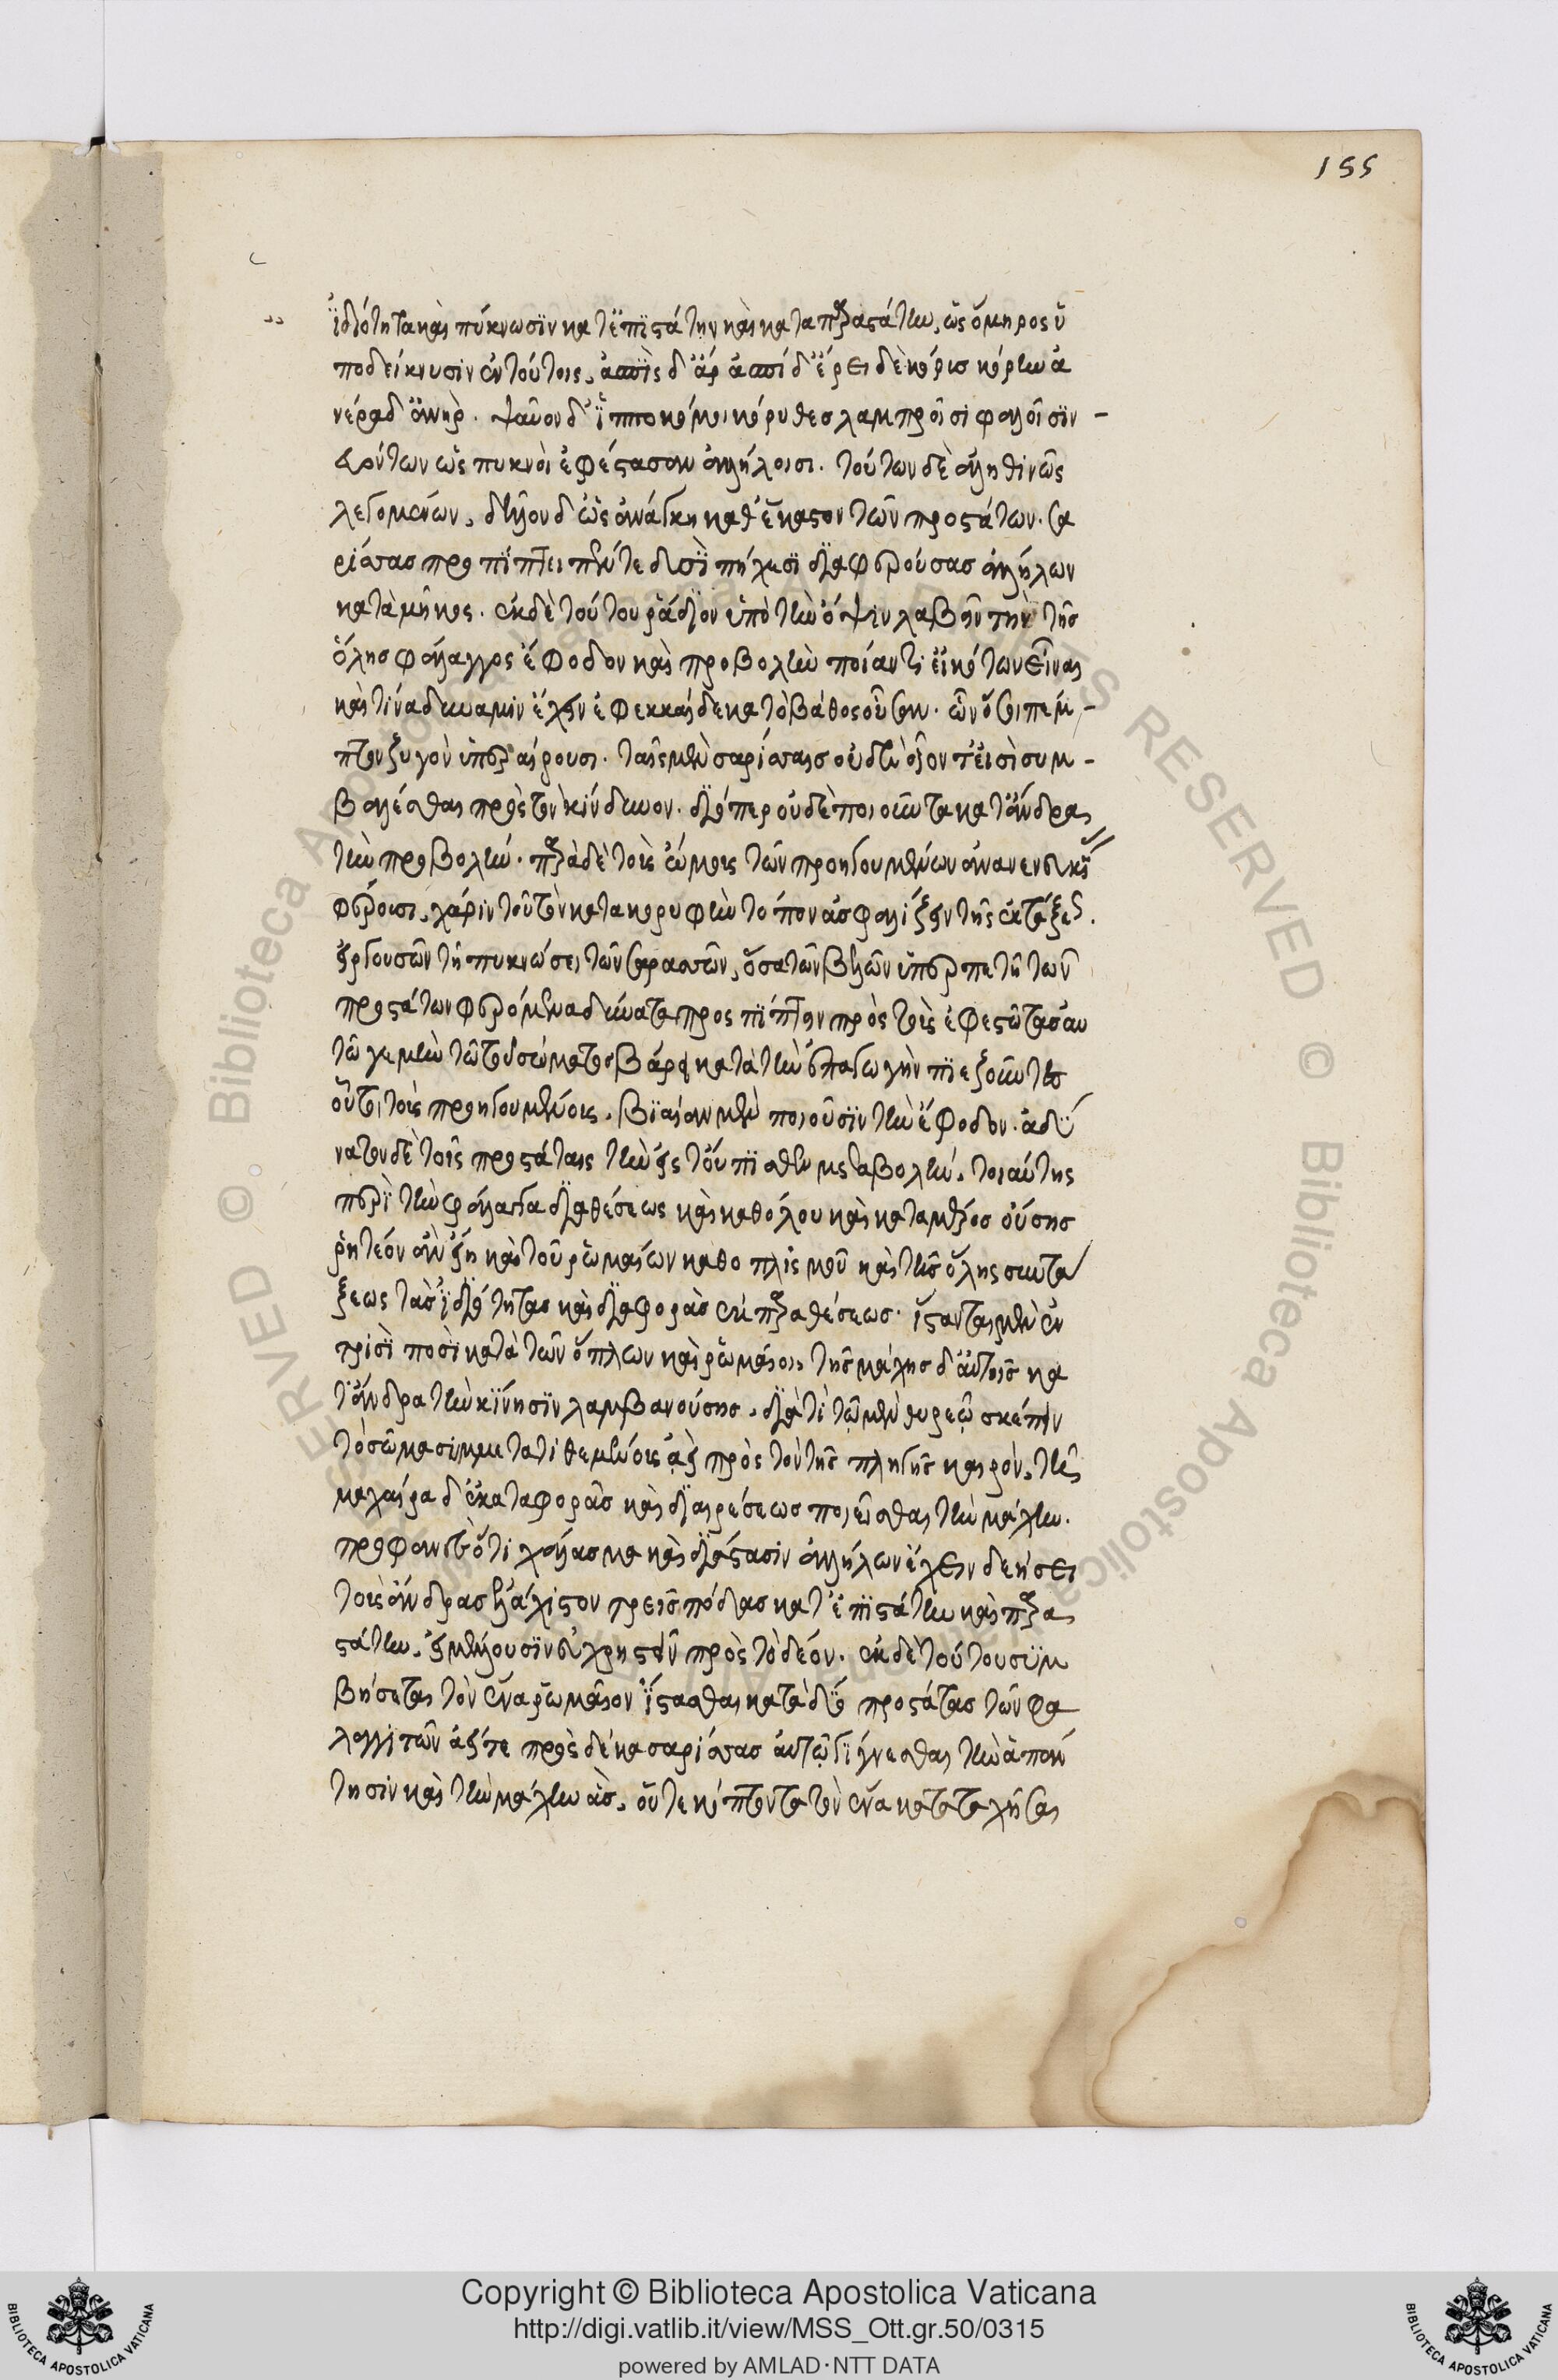 ἰδιότητα καὶ πύκνωσιν κατ' ἐπιστάτην καὶ κατὰ παραστάτην, ὡς ὅμηρος ὑ
ποδείκνυσιν ἐν τούτοις, ἀσπὶς δ' ἄρ ἀσπίδ' ἔρειδε κόρις κόρυν ἀ
νέρα δ' ἀνήρ. ψαῦον δ' ἱπποκόμοι κόρυθες λαμπροῖσι φαλοῖσιν –
δρόντων ὣς πυκνοὶ ἐφέστασαν ἀλλήλοισι. τούτων δὲ ἀληθινῶς
λεγομένων, δῆλον δ' ὡς ἀνάγκη καθ' ἕκαστον τῶν προστάτων. σα
ρίσσας προπίπτει πέντε δυσὶ πήχεσι διαφερούσας ἀλλήλων
κατὰ μῆκος. ἐκ δὲ τούτου ῥάδιον ὑπὸ τὴν ὄψιν λαβεῖν τὴν τῆς
ὅλης φάλαγγος ἔφοδον καὶ προβολὴν ποίαν τι εἰκότων εἶναι
καὶ τίνα δύναμιν ἔχειν ἐφεκκαίδεκα τὸ βάθος οὖσαν. ὧν ὅσοι πέμ –
πτον ζυγὸν ὑπεραίρουσι. ταῖς μὲν σαρίσσαις οὐδὲν οἷον τ' εἰσὶ συμ –
βαλέσθαι πρὸς τὸν κίνδυνον. διόπερ οὐδὲ ποιοῦνται κατ' ἄνδρα
τὴν προβολήν. παρὰ δὲ τοῖς ὤμοις τῶν προηγουμένων ἀνανενευκυῖας
φέρουσι, χάριν τοῦ τὸν κατὰ κορυφὴν τόπον ἀσφαλίζειν τῆς ἐκτάξεως.
εἰργουσῶν τῇ πυκνώσει τῶν σαρισσῶν, ὅσα τῶν βελῶν ὑπερπετῆ τῶν
προστάτων φερόμενα δύναται προσπίπτειν πρὸς τοὺς ἐφεστῶτας. αυ
τῷ γε μὴν τῷ τοῦ σώματος βάρει κατὰ τὴν ἐπαγωγὴν πιεζοῦντες
οὗτοι τοὺς προηγουμένους, βίαιον μὲν ποιοῦσιν τὴν ἔφοδον. ἀδύ
νατον δὲ τοῖς προστάταις τὴν εἰς τοὔπισθεν μεταβολήν. τοιαύτης
περὶ τὴν φάλαγγα διαθέσεως καὶ καθόλου καὶ κατὰ μέρος οὔσης
ῥητέον ἂν εἴη καὶ τοῦ ῥωμαίων καθοπλισμοῦ καὶ τῆς ὅλης συντά
ξεως τὰς ἰδιότητας καὶ διαφορὰς ἐκ παραθέσεως. ἵστανται μὲν ἐν
τρισὶ ποσὶ κατὰ τῶν ὅπλων καὶ ῥωμαίοι, τῆς μάχης δ' αὐτοῖς κα
τ' ἄνδρα τὴν κίνησιν λαμβανούσης. διὰ τὸ τῷ μὲν θυρεῷ σκέπειν
τὸ σῶμα συμμετατιθεμένους ἀεὶ πρὸς τὸν τῆς πληγῆς καιρόν, τῇ
μαχαίρα δ' ἐκ καταφορᾶς καὶ διαιρέσεως ποιεῖσθαι τὴν μάχην.
προφανὲς ὅτι χάλασμα καὶ διάστασιν ἀλλήλων ἔχειν δεήσει
τοὺς ἄνδρας ἐλάχιστον τρεῖς πόδας κατ' ἐπιστάτην καὶ παρα
στάτην, εἰ μέλλουσιν εὐχρηστεῖν πρὸς τὸ δέον. ἐκ δὲ τούτου συμ
βήσεται τὸν ἕνα ῥωμαῖον ἵστασθαι κατὰ δύο προστάτας τῶν φα
λαγγιτῶν ὥστε πρὸς δέκα σαρίσσας αὐτῷ γίγνεσθαι τὴν ἀπάν
τησιν καὶ τὴν μάχην ἃς, οὔτε κόπτοντα τὸν ἕνα καταταχῆσαι
155
Copyright © Biblioteca Apostolica Vaticana
http://digi.vatlib.it/view/MSS_Ott.gr.50/0315
powered by AMLAD·NTT DATA